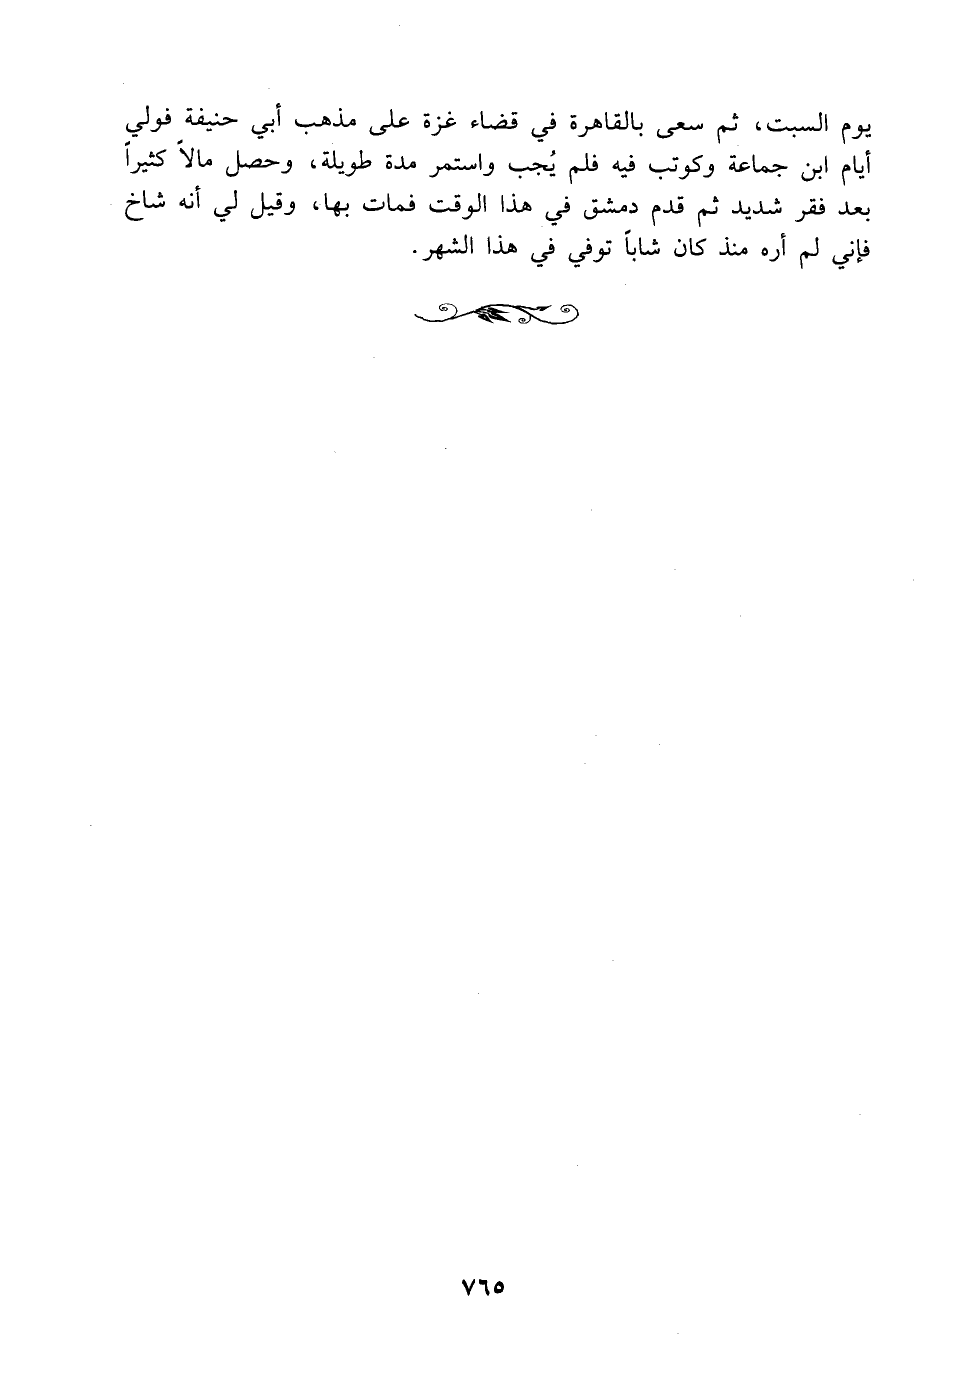 يوم السبت، ثم سعى بالقاهرة في قضاء غزة على مذهب أبي حنيفة فولي
أيام ابن جماعة وكوتب فيه فلم يُجب واستمر مدة طويلة، وحصل مالاً كثيراً
بعد فقر شديد ثم قدم دمشق في هذا الوقت فمات بها، وقيل لي أنه شاخ
فإني لم أره منذ كان شاباً توفي في هذا الشهر.
٧٦٥